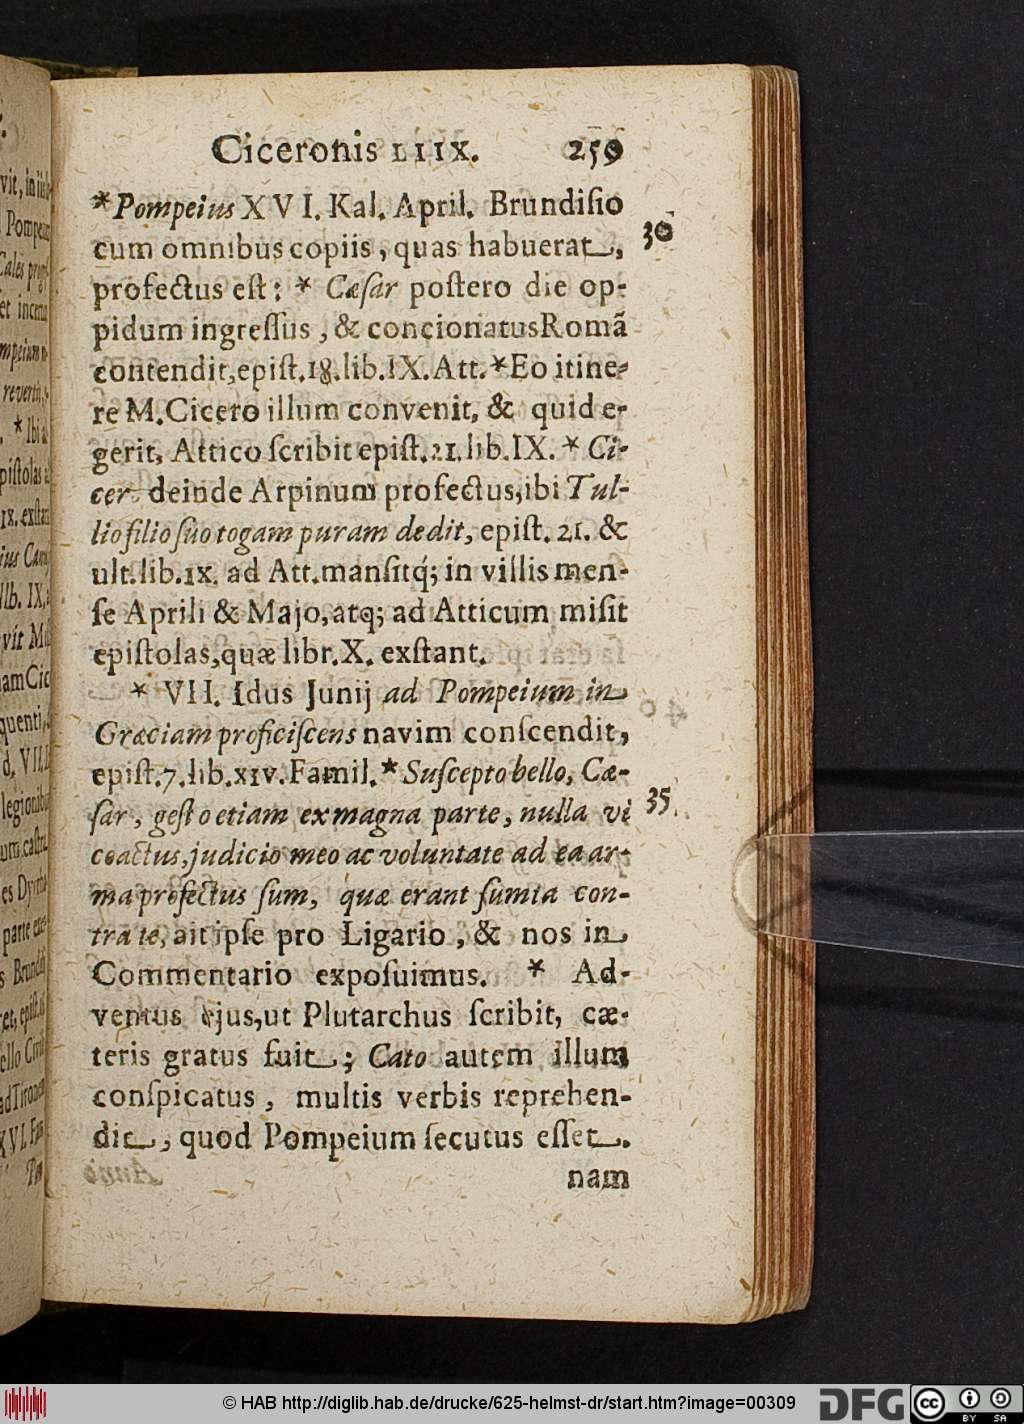 Ciceronis LIIX. 259
*Pompeius XVI. Kal. April. Brundiſio
cum omnibus copiis, quas habuerat, 30
profectus eſt: * Cæſar poſtero die op-
pidum ingreſſus, & concionatus Romã
contendit, epiſt. 18. lib. IX. Att. *Eo itine-
re M. Cicero illum convenit, & quid e-
gerit, Attico ſcribit epiſt. 21. lib. IX. * Ci-
cer deinde Arpinum profectus, ibi Tul-
lio filio ſuo togam puram dedit, epiſt. 21. &
ult. lib. IX. ad Att. manſitq́; in villis men-
ſe Aprili & Majo, atq; ad Atticum miſit
epiſtolas, quæ libr. X. exſtant.
* VII. Idus Junij ad Pompeium in
Græciam proficiſcens navim conſcendit,
epiſt. 7. lib. XIV. Famil. * Suſcepto bello, Cæ-
ſar, geſto etiam ex magna parte, nulla vi 35.
coactus, judicio meo ac voluntate ad ea ar-
ma profectus ſum, quæ erant ſumta con-
tra te, ait ipſe pro Ligario, & nos in
Commentario expoſuimus. * Ad-
ventus ejus, ut Plutarchus ſcribit, cæ-
teris gratus fuit; Cato autem illum
conſpicatus, multis verbis reprehen-
dit, quod Pompeium ſecutus eſſet.
nam
© HAB http://diglib.hab.de/drucke/625-helmst-dr/start.htm?image=00309
DFG
cc
BY SA